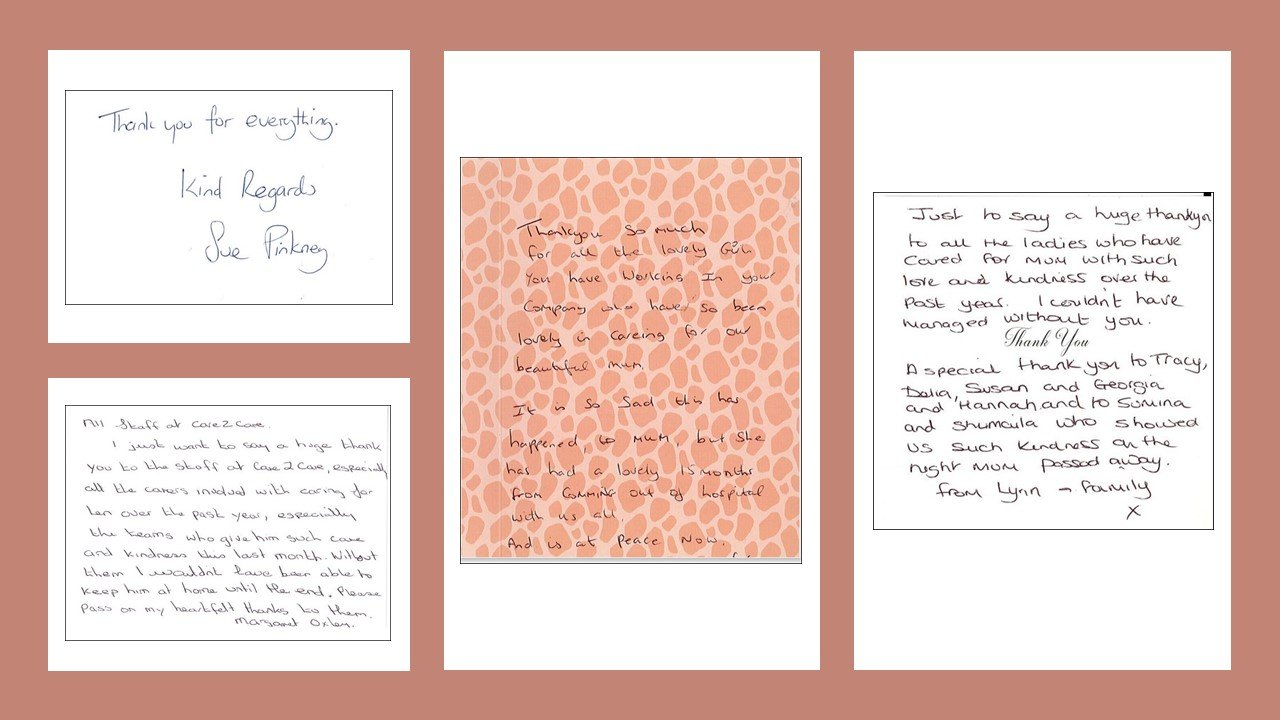 Thank you for everything.
Kind Regards
Sue Pinkney
All Staff at Care2Care.
I just want to say a huge thank
you to the staff at Care 2 Care, especially
all the carers involved with caring for
Len over the past year, especially
the teams who give him such care
and kindness this last month. Without
them I wouldnt have been able to
keep him at home until the end. Please
pass on my heartfelt thanks to them.
Margaret
Thankyou so much
for all the lovely Girls
You have Working In your
Company who have so been
lovely in careing for our
beautiful mum
It is so Sad this has
happened to mum, but she
has had a lovely 15 months
from Comming out of hospital
with us all.
And is at Peace Now.
Just to say a huge thankyou
to all the ladies who have
cared for Mum with such
love and kindness over the
past year. I couldn't have
managed without you.
Thank You
A special thank you to Tracy,
Delia, Susan and Georgia
and Hannah and to Sumina
and Shumaila who showed
us such kindness on the
night Mum passed away.
from Lynn + family
x